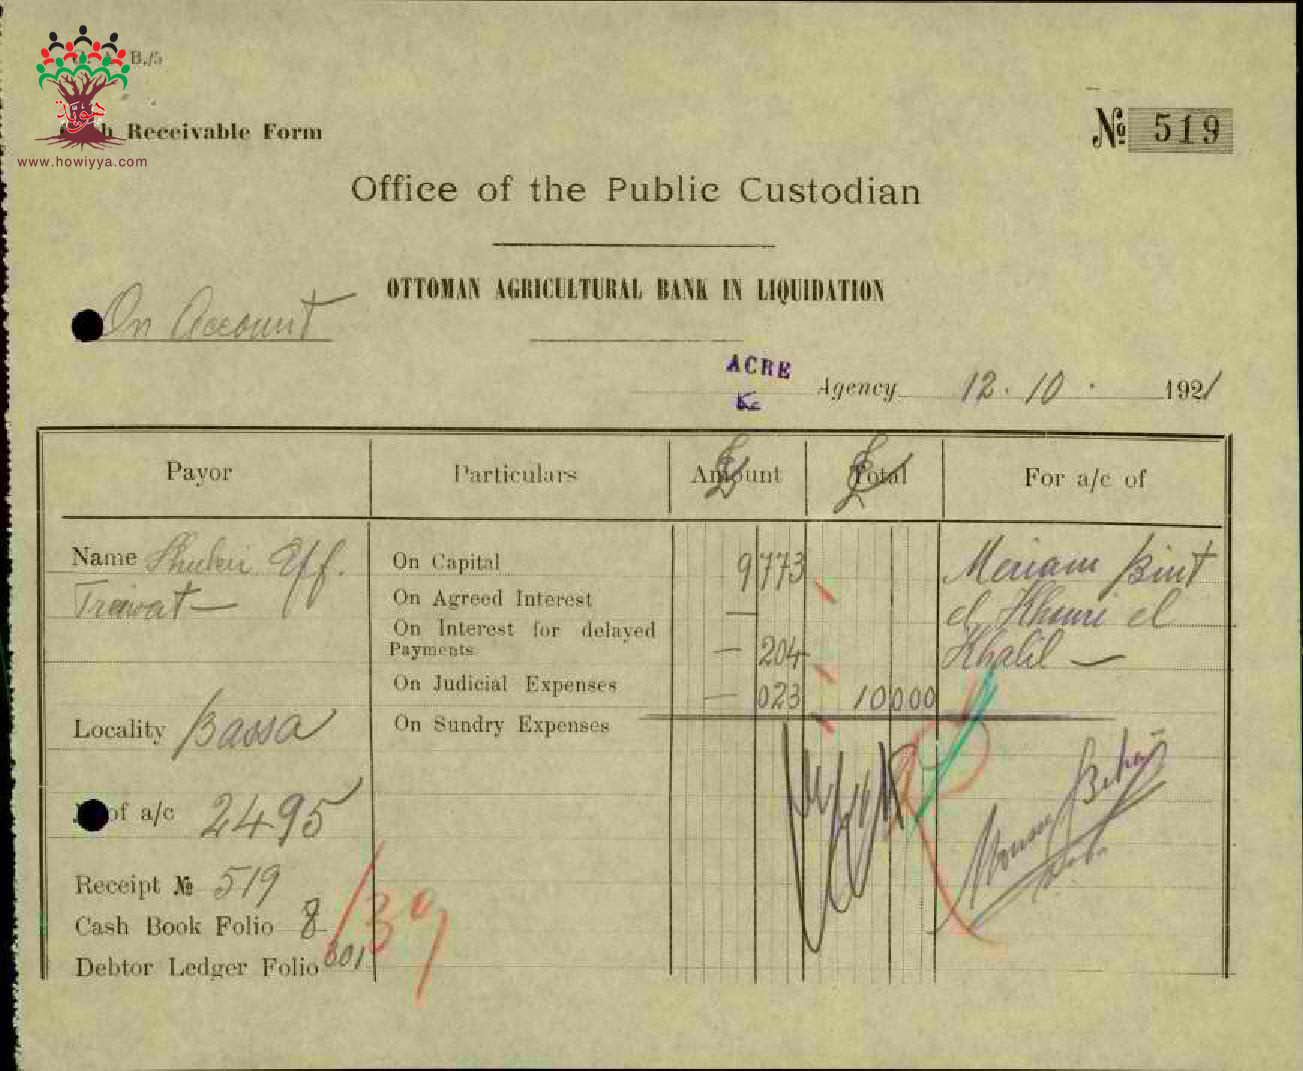 B./5
Receivable Form
www.howiyya.com
№ 519
Office of the Public Custodian
OTTOMAN AGRICULTURAL BANK IN LIQUIDATION
On Account
ACRE
Agency 12.10. 1921
Payor Particulars Amount Total For a/c of
£ £
Name Shukri Eff.
On Capital 9 773
Meriam Bint
On Agreed Interest —
el Khouri el
On Interest for delayed
Payments — 204
Khalil —
On Judicial Expenses — 023 10 000
Locality Bassa
On Sundry Expenses
of a/c 2495
Receipt № 519
Cash Book Folio 8
139
Debtor Ledger Folio 601